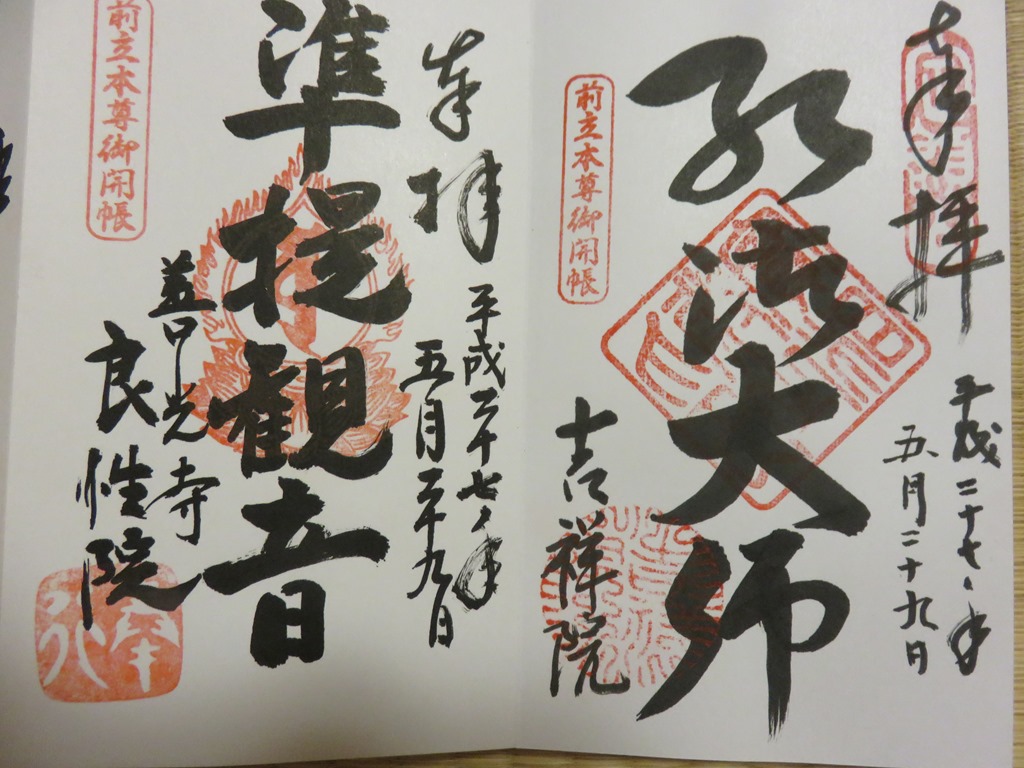 奉拝
平成二十七年
五月二十九日
弘法大師
前立本尊御開帳
吉祥院
奉拝
平成二十七年
五月二十九日
準提観音
善光寺
良性院
前立本尊御開帳